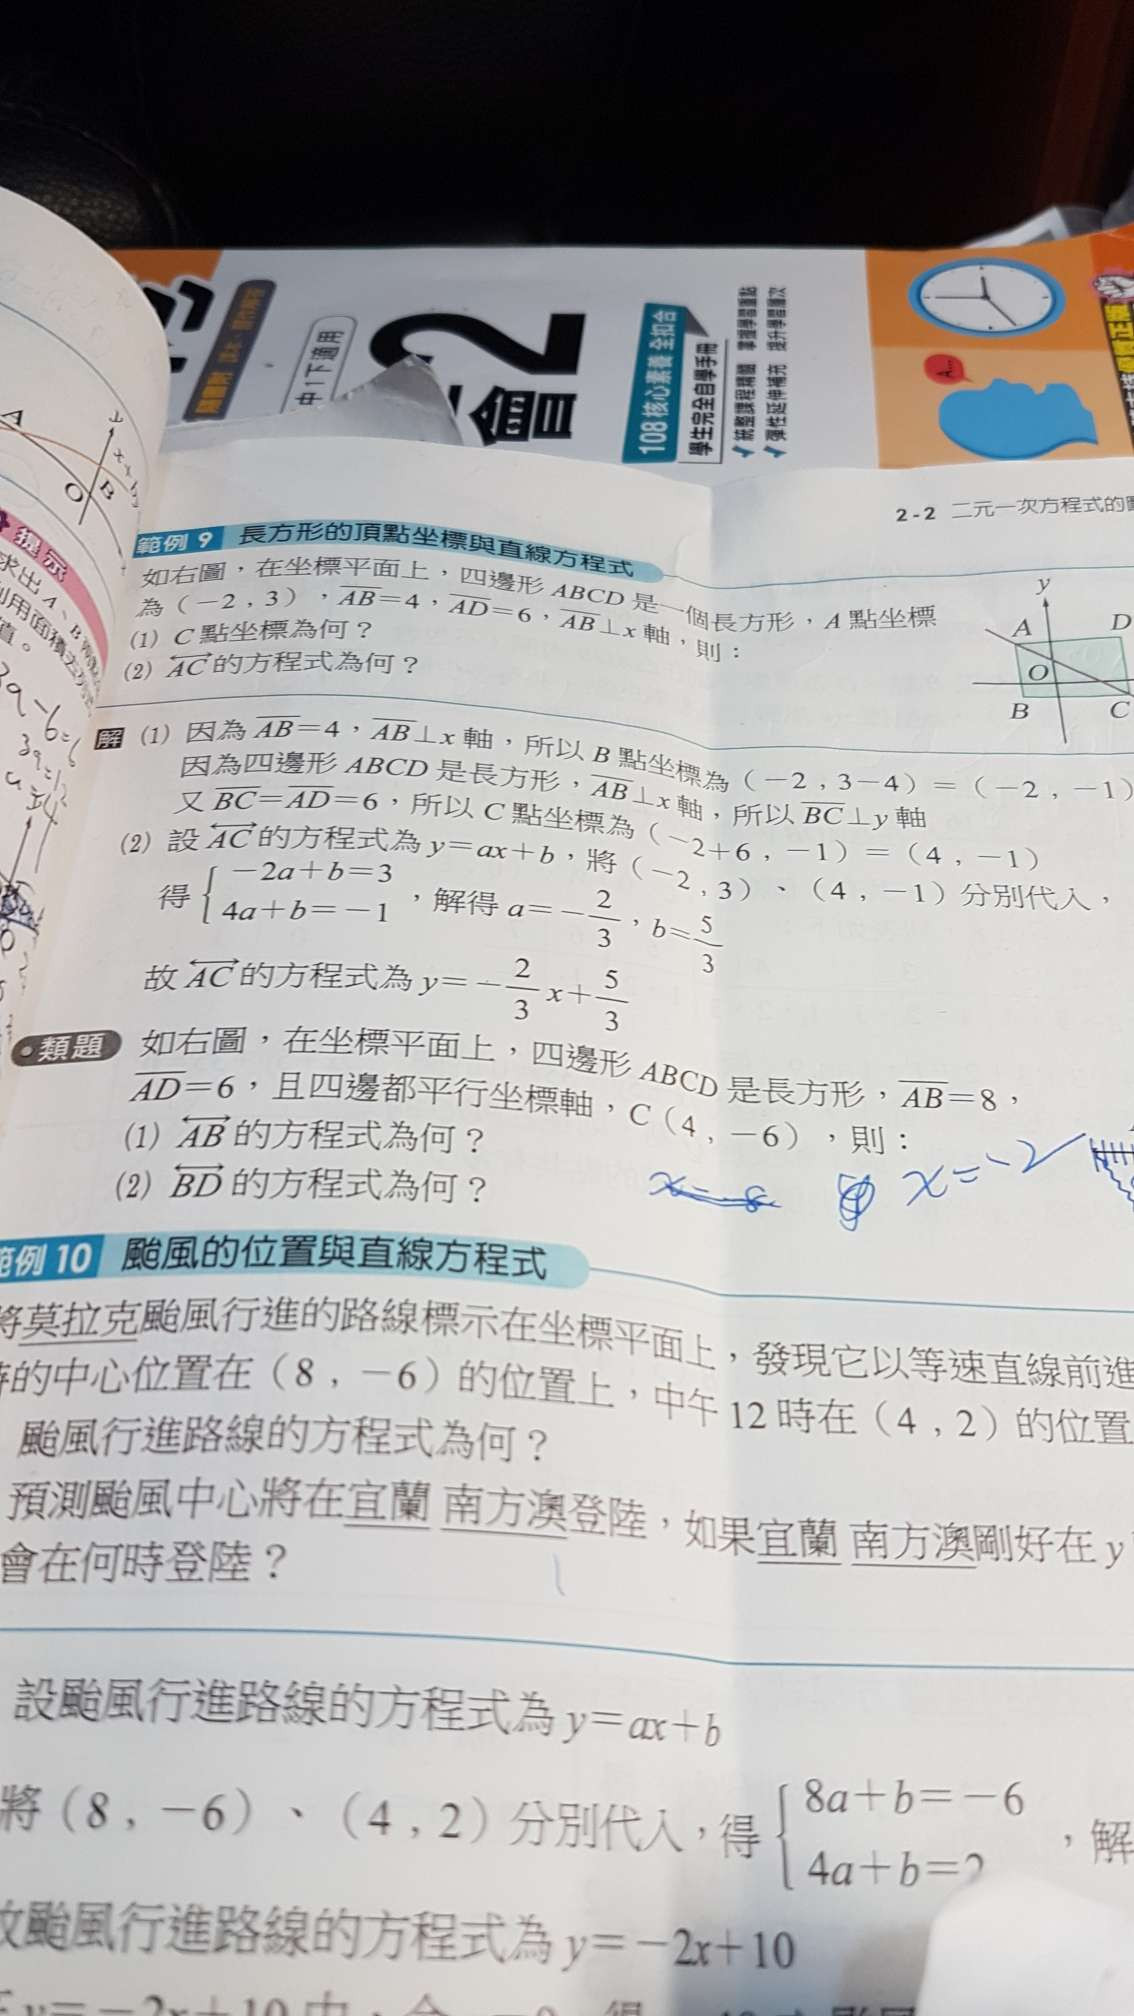 中1下適用
冊2
108核心素養 全扣合
學生完全自學手冊
A...
2-2 二元一次方程式的
範例 9 長方形的頂點坐標與直線方程式
如右圖，在坐標平面上，四邊形 ABCD 是一個長方形，A 點坐標
為（-2 , 3），AB=4，AD=6，AB⊥x 軸，則：
(1) C 點坐標為何？
(2) AC 的方程式為何？
y
A
D
O
B
C
解 (1) 因為 AB=4，AB⊥x 軸，所以 B 點坐標為（-2 , 3-4）=（-2 , -1）
因為四邊形 ABCD 是長方形，AB⊥x 軸，所以 BC⊥y 軸
又 BC=AD=6，所以 C 點坐標為（-2+6 , -1）=（4 , -1）
(2) 設 AC 的方程式為 y=ax+b，將（-2 , 3）、（4 , -1）分別代入，
得 { -2a+b=3
4a+b=-1 ，解得 a=-2/3，b=5/3
故 AC 的方程式為 y=-2/3 x+5/3
類題 如右圖，在坐標平面上，四邊形 ABCD 是長方形，AB=8，
AD=6，且四邊都平行坐標軸，C（4 , -6），則：
(1) AB 的方程式為何？
(2) BD 的方程式為何？
x=-2
範例 10 颱風的位置與直線方程式
將莫拉克颱風行進的路線標示在坐標平面上，發現它以等速直線前進
時的中心位置在（8 , -6）的位置上，中午 12 時在（4 , 2）的位置
颱風行進路線的方程式為何？
預測颱風中心將在宜蘭 南方澳登陸，如果宜蘭 南方澳剛好在 y
會在何時登陸？
設颱風行進路線的方程式為 y=ax+b
將（8 , -6）、（4 , 2）分別代入，得 { 8a+b=-6
4a+b=2 ，解
故颱風行進路線的方程式為 y=-2x+10
提示
求出 A、B
利用面積
值。
A
y
O
B